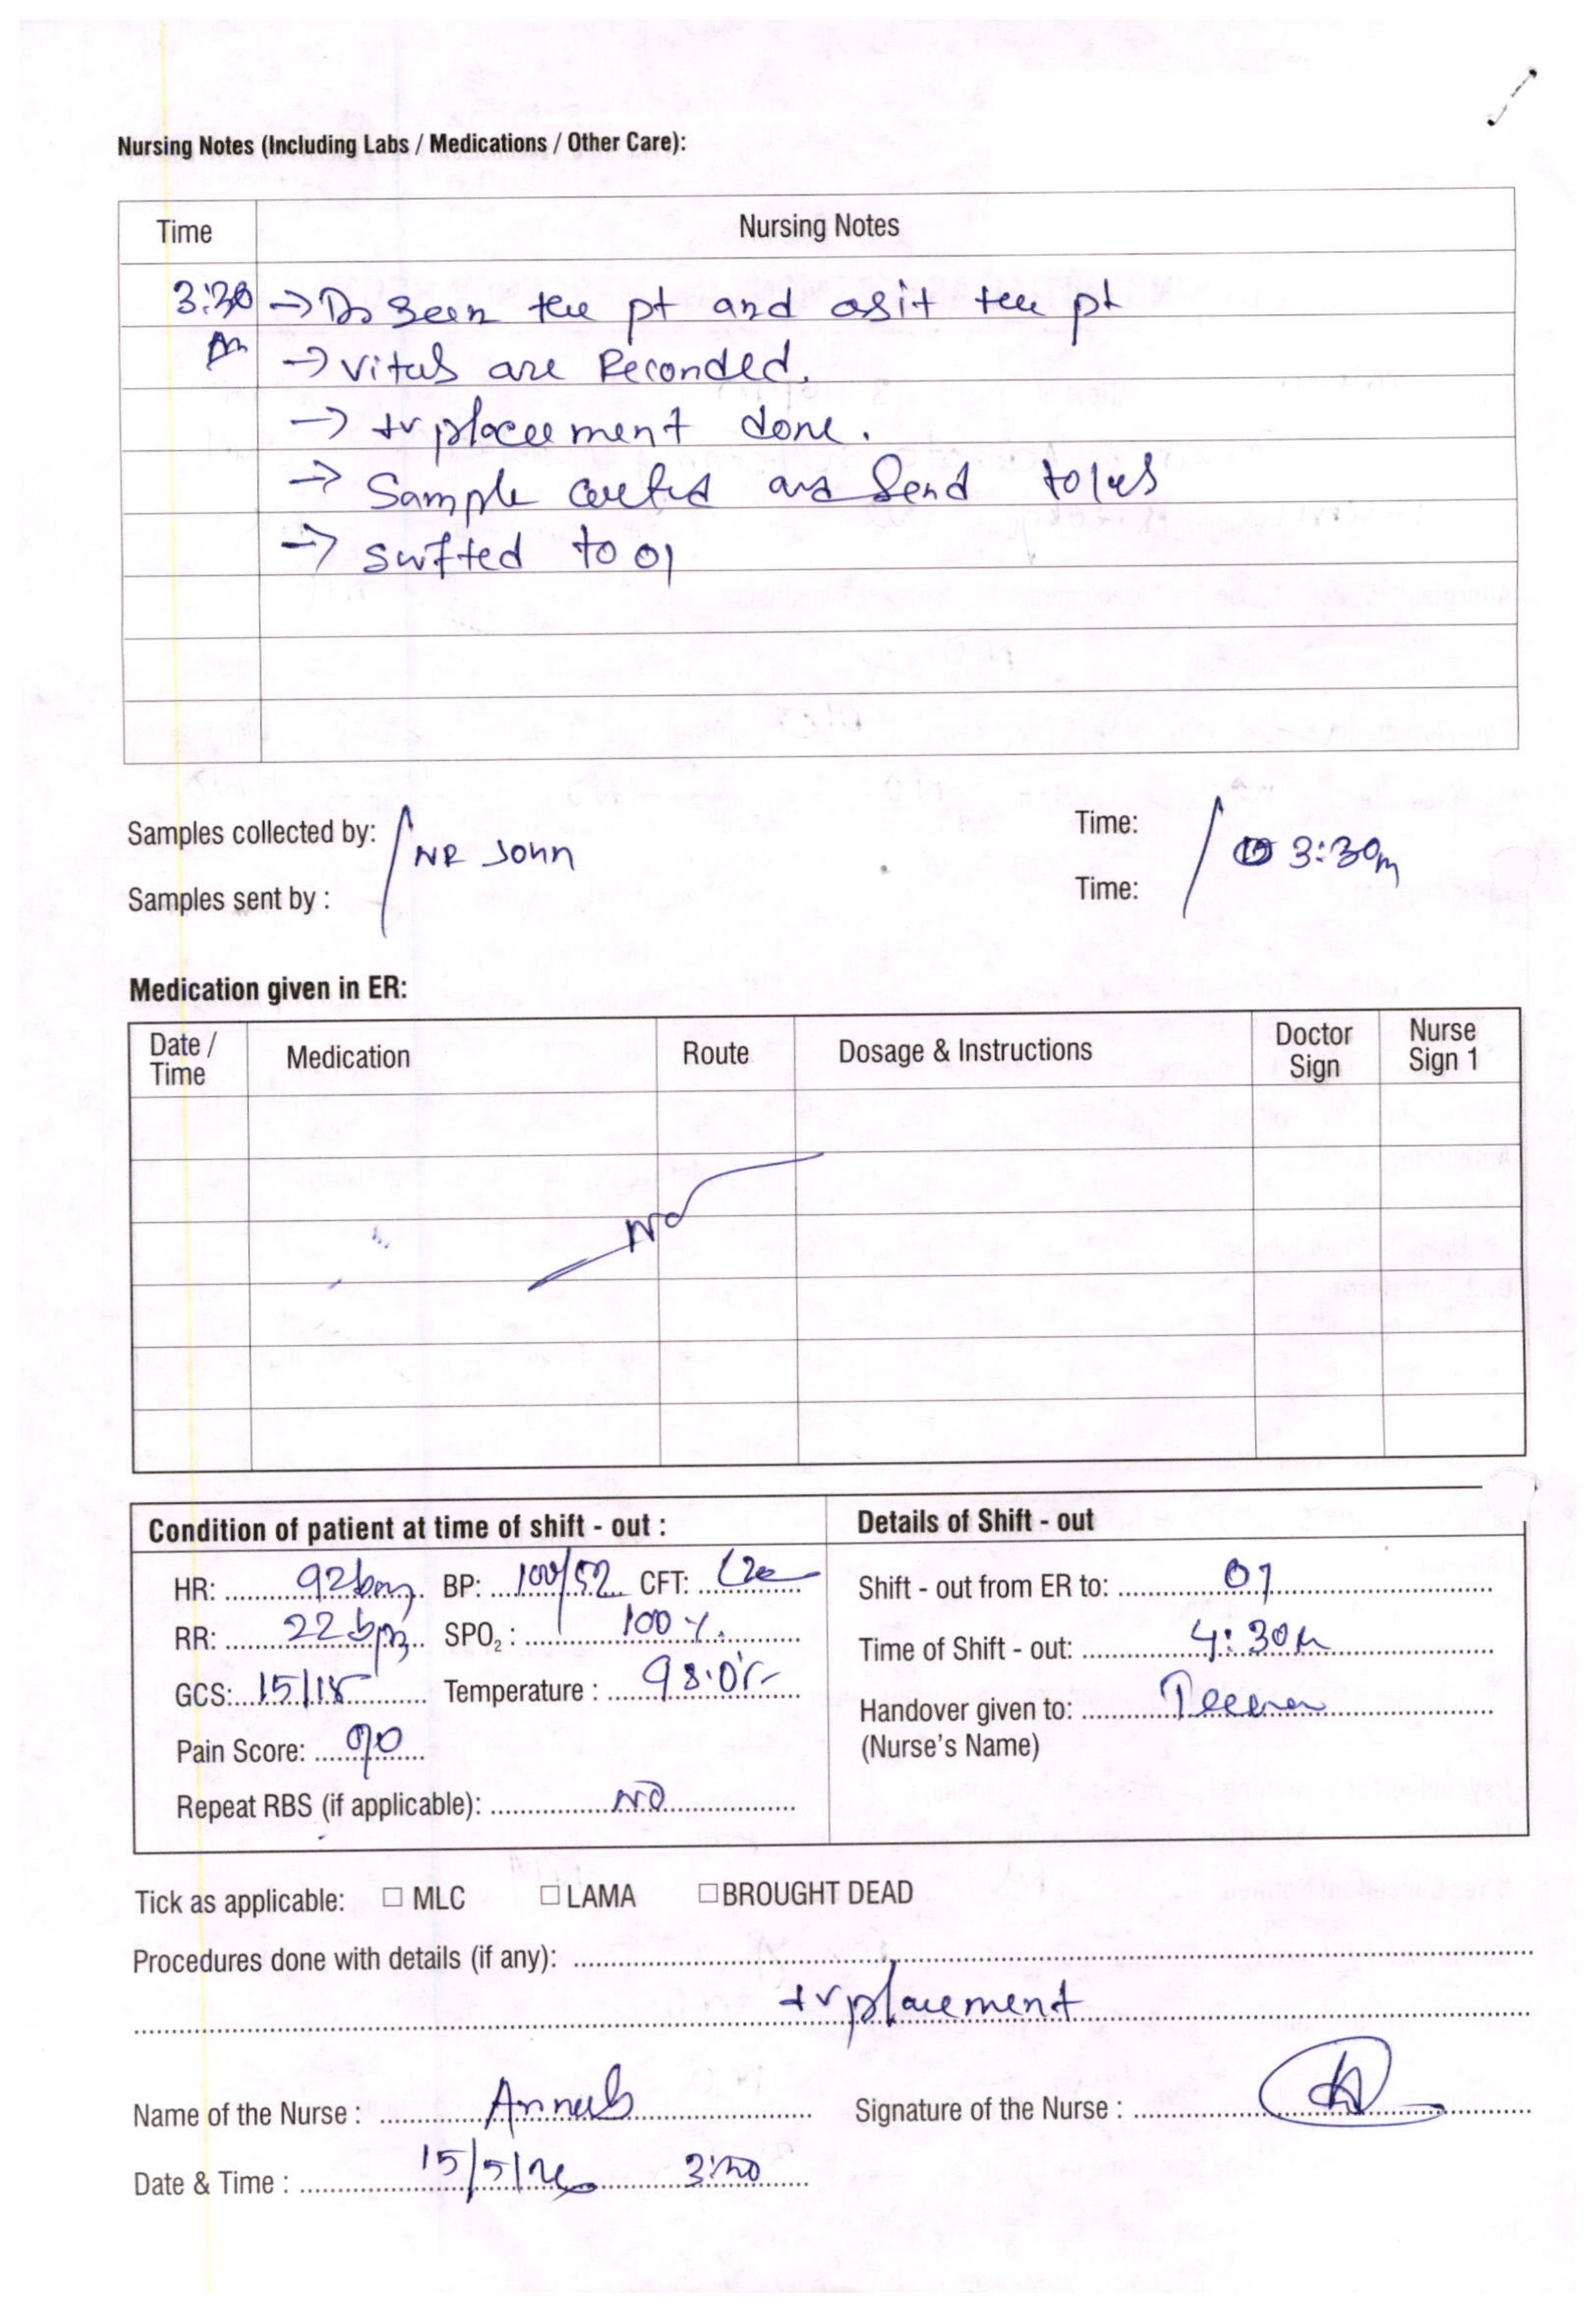 Nursing Notes (Including Labs / Medications / Other Care):
Time Nursing Notes
3:30 → Dr Seen the pt and asit the pt
Am → vitals are Reconded.
→ Iv placeement done.
→ Sample and Send to
→ to 01
Samples collected by: NR John Time: 3:30
Samples sent by : Time:
Medication given in ER:
Date / Time Medication Route Dosage & Instructions Doctor Sign Nurse Sign 1
NO
Condition of patient at time of shift - out : Details of Shift - out
HR: 92 BP: 100/52 CFT: Shift - out from ER to: 01
RR: 22 bpm SPO2 : 100 %. Time of Shift - out: 4:30
GCS: 15/15 Temperature : 98.0 Handover given to:
Pain Score: (Nurse's Name)
Repeat RBS (if applicable): NO
Tick as applicable: ☐ MLC ☐ LAMA ☐ BROUGHT DEAD
Procedures done with details (if any):
Iv placement
Name of the Nurse : Signature of the Nurse :
Date & Time : 15/5/